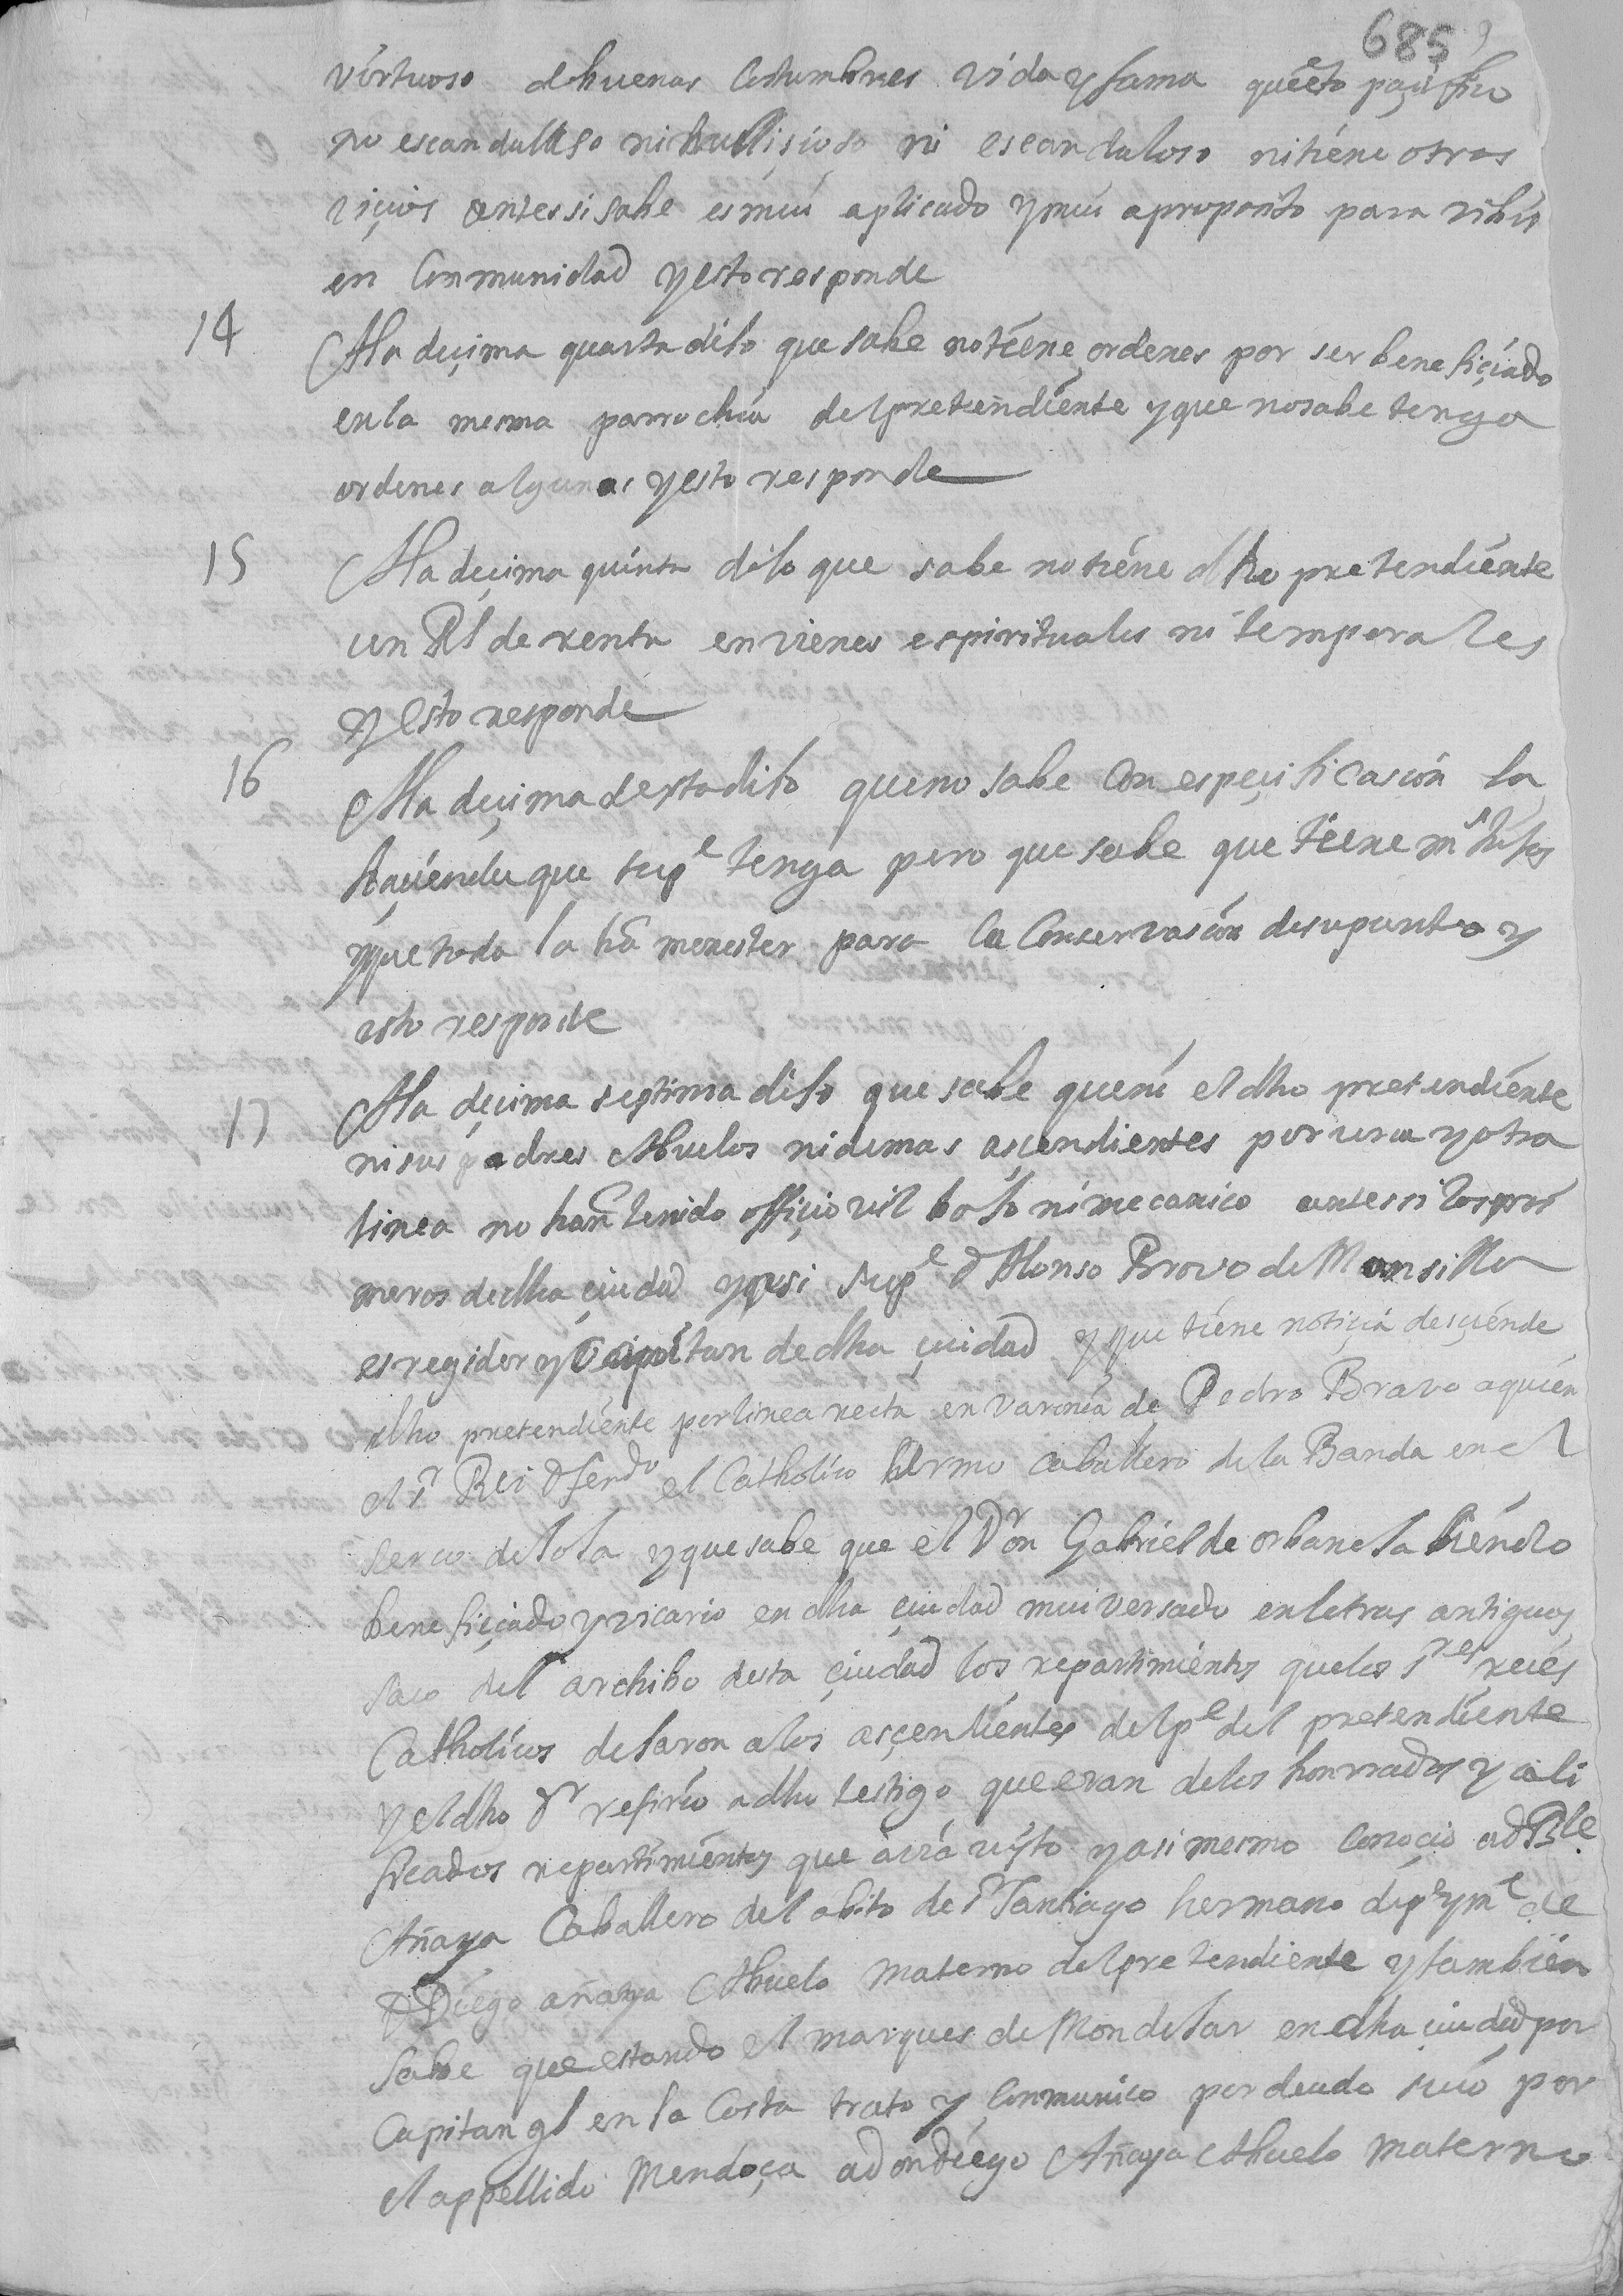 685
virtuoso de buenas Costumbres vida y fama quieto paçifico
no escandaloso ni bullisioso ni escandaloso ni tiene otros
viçios antes si sabe es mui aplicado y mui aproposito para vibir
en Conmunidad y esto responde
14 A la deçima quarta dixo que sabe no tiene ordenes por ser benefiçiado
en la mesma parrochia del pretendiente y que no sabe tenga
ordenes algunas y esto responde
15 A la deçima quinta dixo que sabe no tiene dho pretendiente
un Rl de renta en vienes espirituales ni temporales
y esto responde
16 A la deçima sexta dixo que no sabe Con espeçificasion la
haçienda que su pe tenga pero que sabe que tiene ms hixos
y que toda la ha menester para la Conservasion de su punto y
esto responde
17 A la deçima septima dixo que sabe que ni el dho pretendiente
ni sus padres Abuelos ni demas asçendientes por una y otra
linea no han tenido offiçio vil boxo ni mecanico antes si los pri
meros de dha çiudad y asi su pe D Alonso Bravo de Mansilla
es regidor y Capitan de dha çiudad y que tiene notiçia desçiende
dho pretendiente por linea recta en varonia de Pedro Bravo a quien
el Sr Rei D ferdo el Catholico armo caballero de la Banda en el
serco de loxa y que sabe que el Dor Gabriel de orbanexa siendo
benefiçiado y vicario en dha çiudad mui versado en letras antiguas
saco del archibo desta çiudad los repartimientos que los sres reies
Catholicos dexaron a los asçendientes del pe del pretendiente
y el dho Dr refirio a dho testigo que eran de los honrrados y cali
ficados repartimientos que avia visto y asi mesmo Conoçio a D Ble
Añaya Caballero del abito de Sr Santiago hermano de pe y me de
D Diego añaya Abuelo Materno del pretendiente y tambien
Sabe que estando el marques de Mondexar en dha çiudad por
Capitan gl en la Costa trato y Conmunico por deudo suio por
el appellido Mendoça a don diego Añaya Abuelo Materno